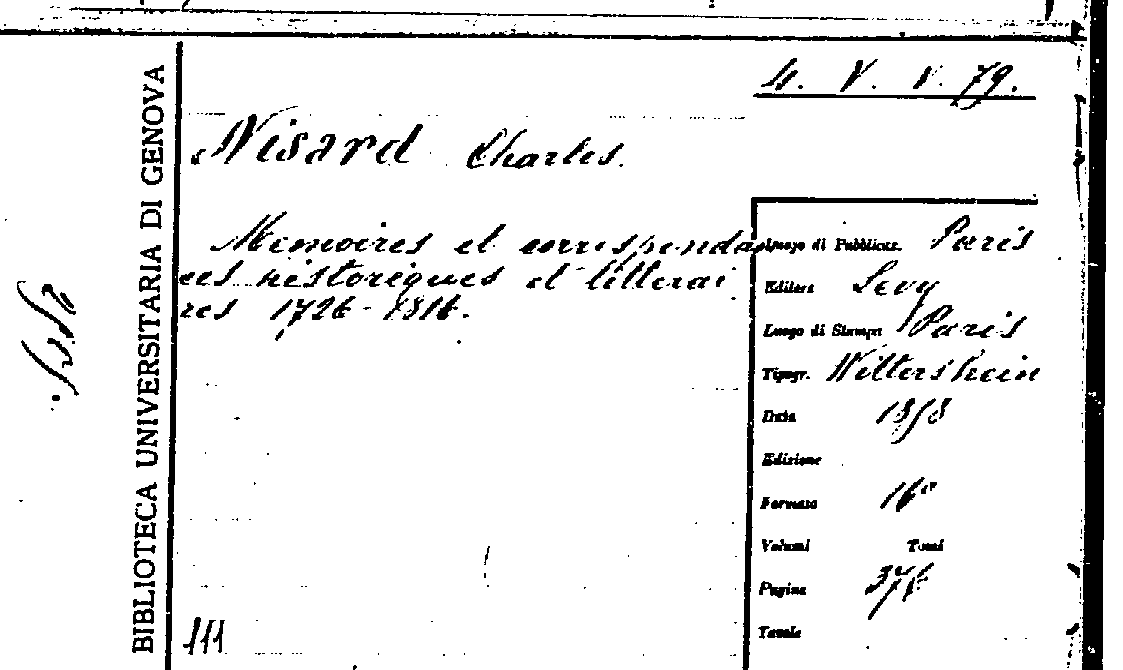 4. V. V. 79.
BIBLIOTECA UNIVERSITARIA DI GENOVA
Nisard Charles.
Memoires et correspondan
ces historiques et litterai
res 1726-1816.
Luogo di Pubblicaz. Paris
Editore Levy
Luogo di Stampa Paris
Tipogr. Wittersheim
Data 1858
Edizione
Formato 16°
Volumi Tomi
Pagine 376
Tavole
111